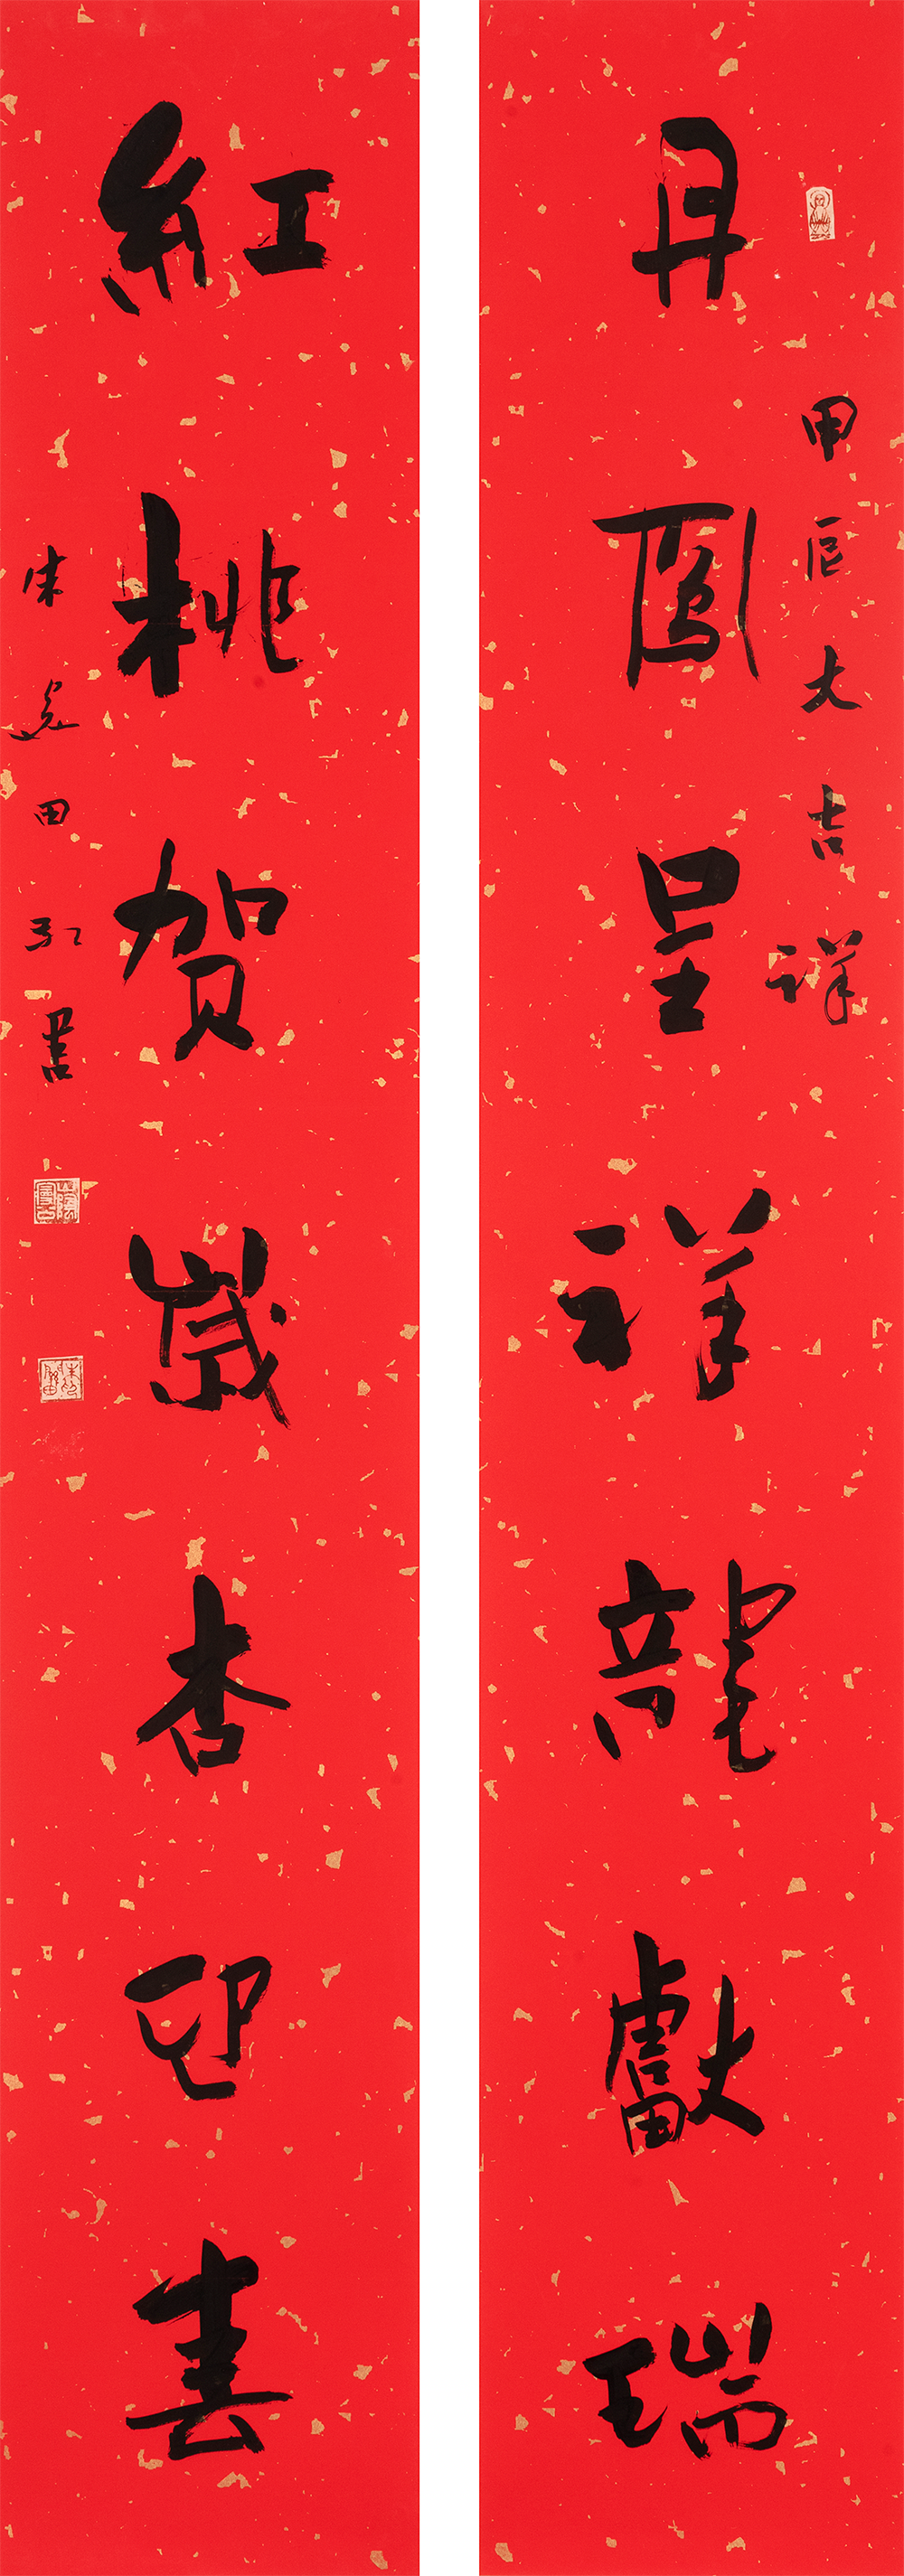 甲辰大吉祥
丹鳳呈祥龍獻瑞
紅桃贺歲杏迎春
朱田書